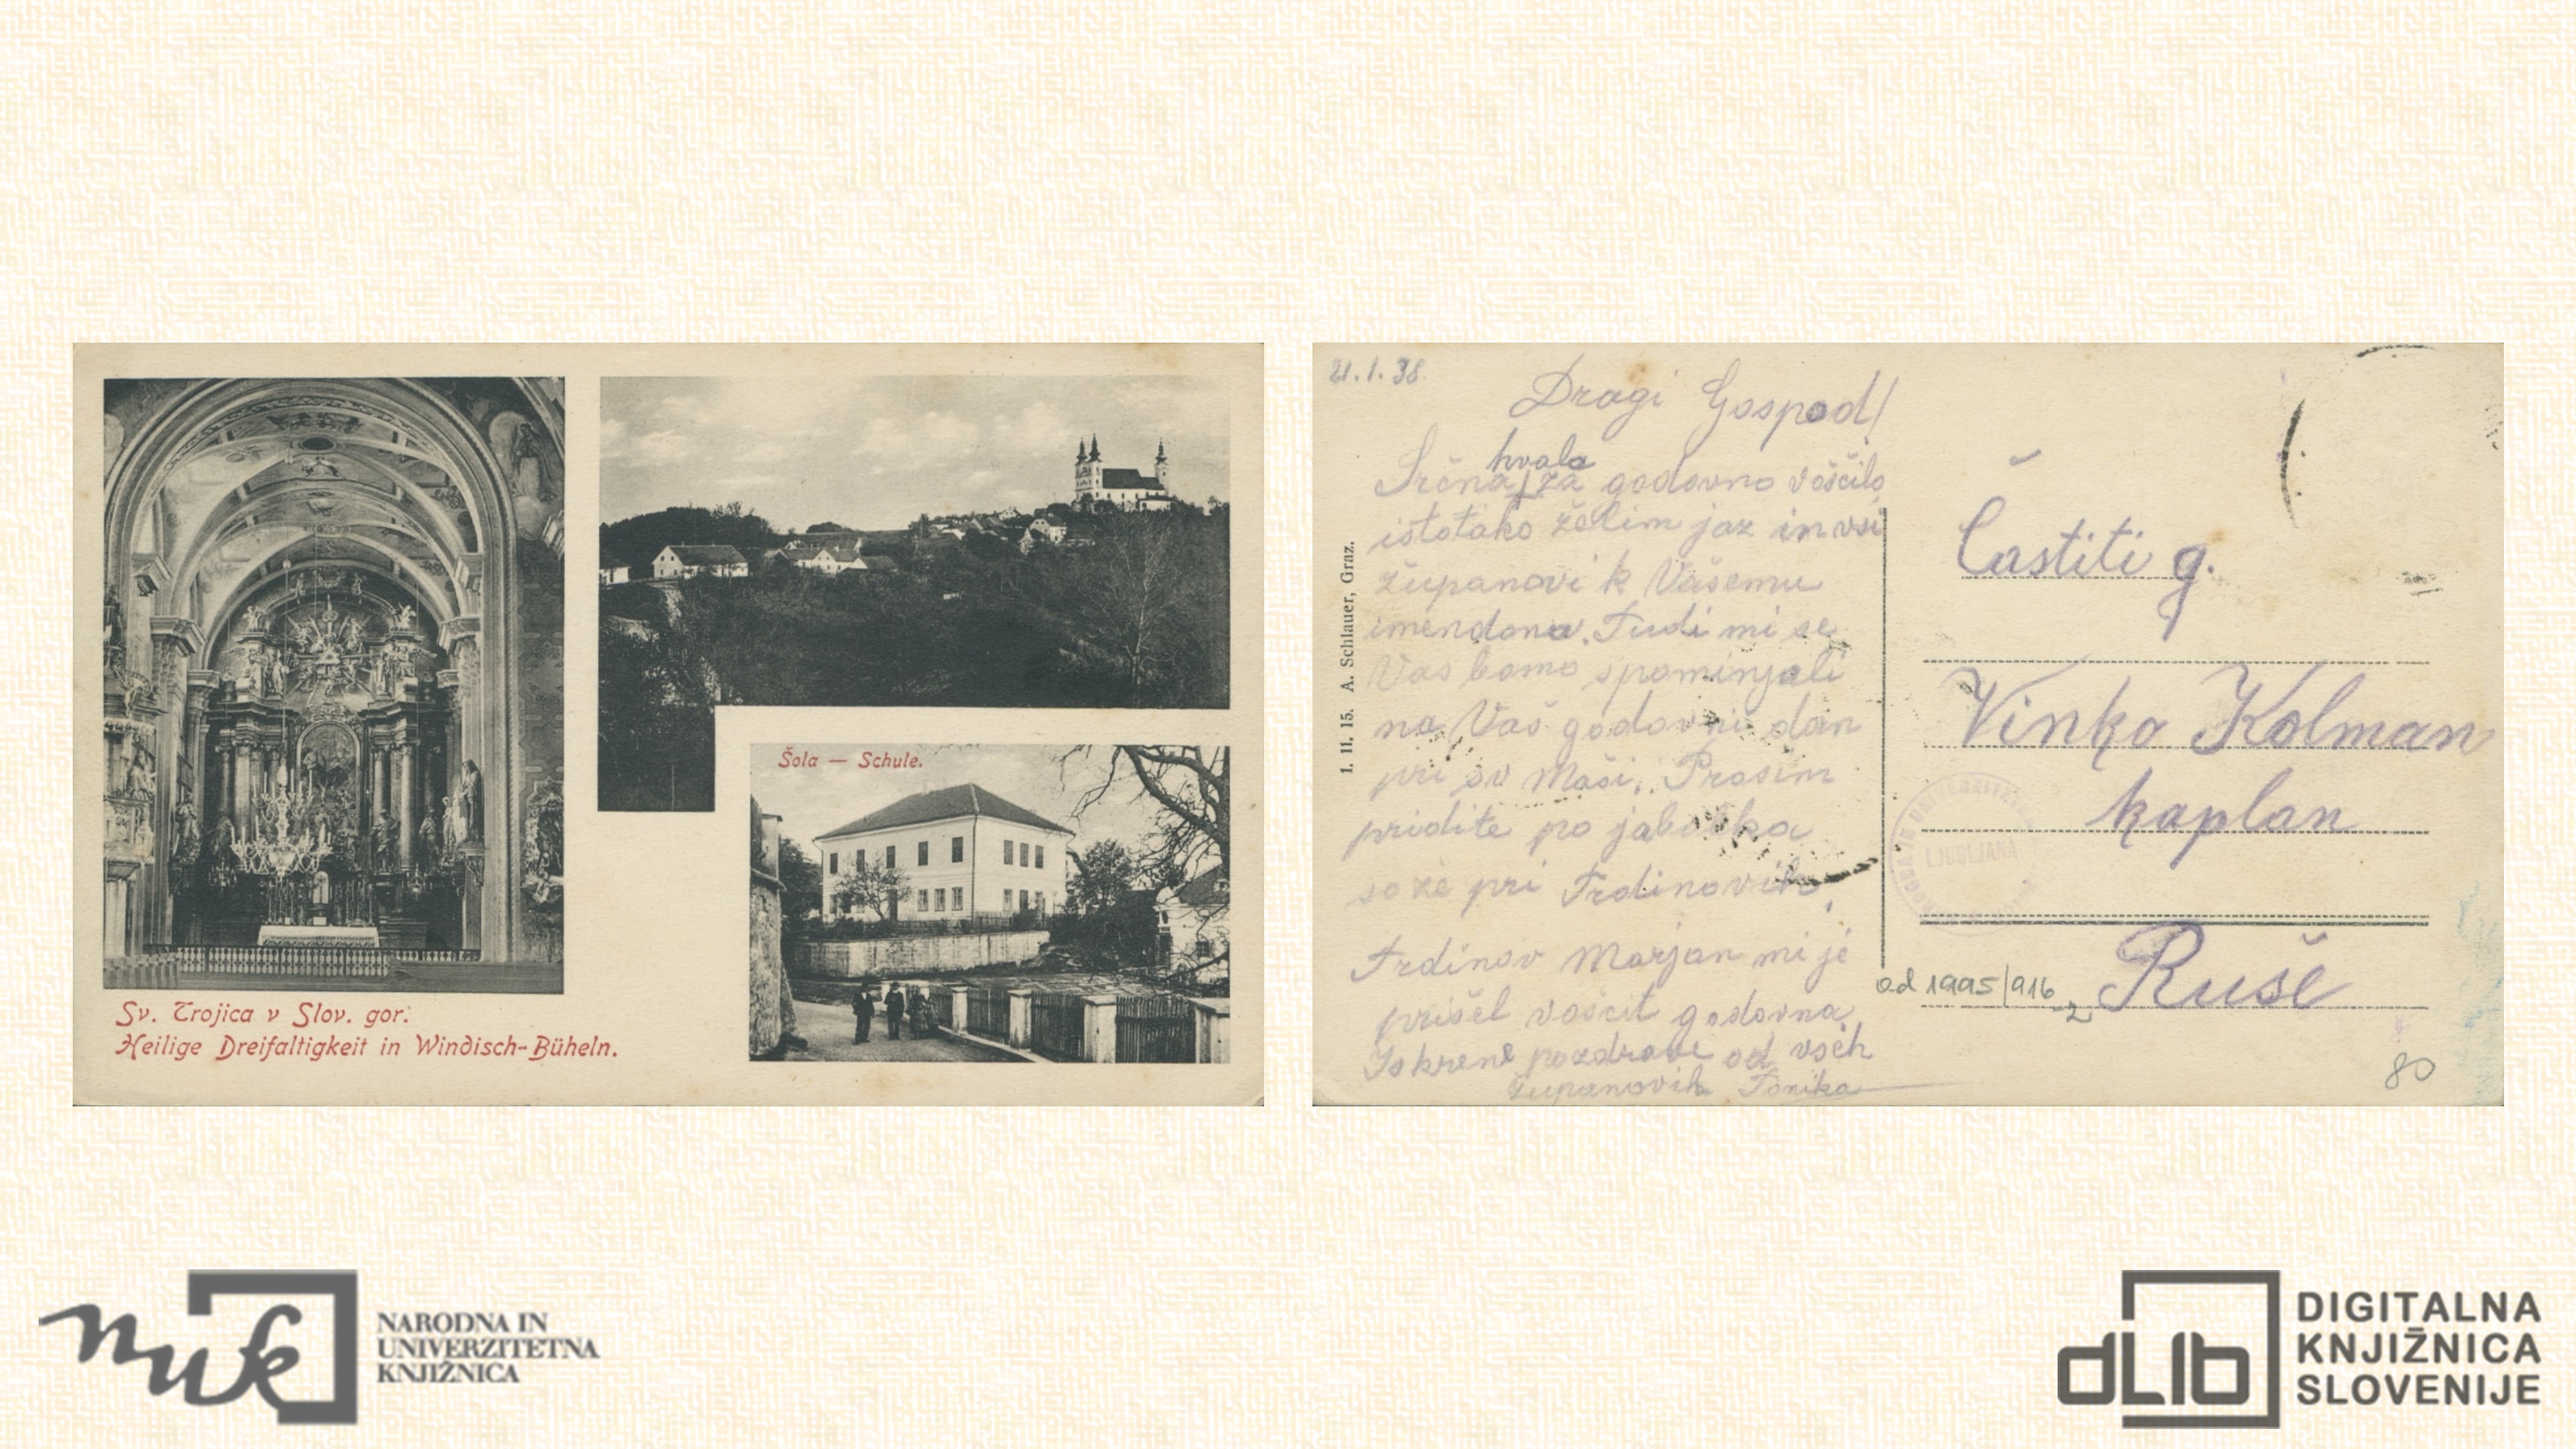 Šola — Schule.
Sv. Trojica v Slov. gor.
Heilige Dreifaltigkeit in Windisch-Büheln.
21.1.38.
Dragi Gospod!
hvala
Srčna za godovno voščilo
istotako želim jaz in vsi
županovi k Vašemu
imendanu. Tudi mi se
Vas bomo spominjali
na Vaš godovni dan
pri sv Maši. Prosim
pridite po jabolka
so že pri Trdinovih.
Trdinov Marjan mi je
prišel voščit godovna
Iskrene pozdrave od vseh
Županovih Tonika
1. 11. 15. A. Schlauer, Graz.
Častiti g.
Vinko Kolman
kaplan
Ruše
LJUBLJANA
od 1995/916
-2
80
nuk
NARODNA IN
UNIVERZITETNA
KNJIŽNICA
dLib
DIGITALNA
KNJIŽNICA
SLOVENIJE